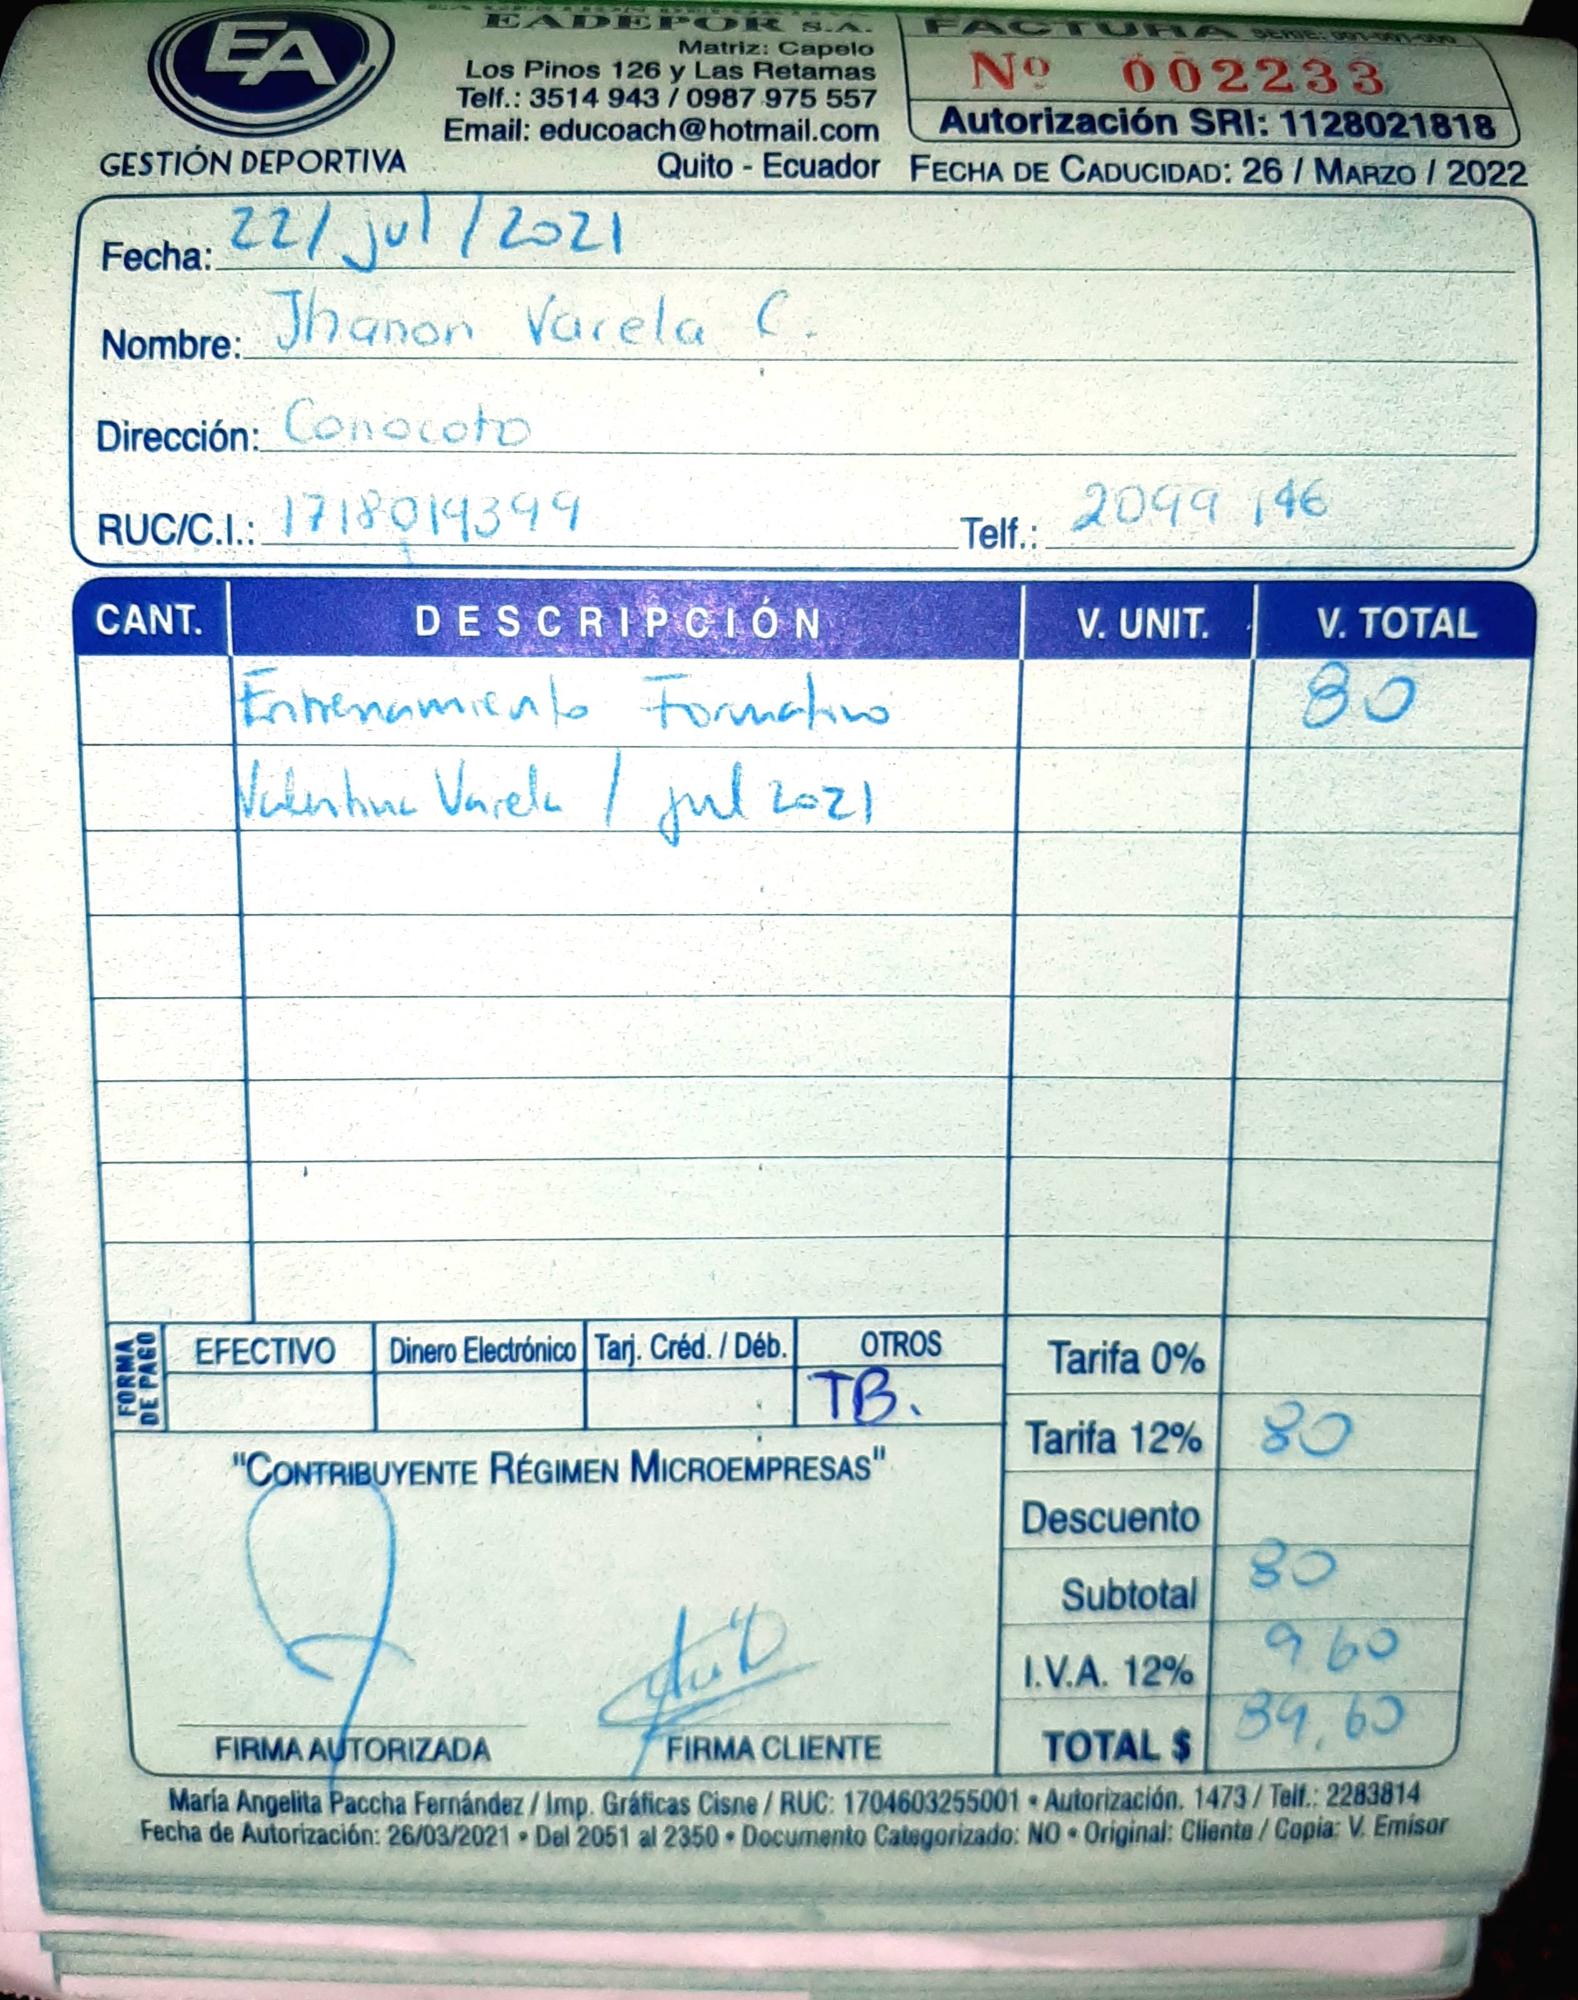 EA
GESTIÓN DEPORTIVA
EADEPOR S.A.
Matriz: Capelo
Los Pinos 126 y Las Retamas
Telf.: 3514 943 / 0987 975 557
Email: educoach@hotmail.com
Quito - Ecuador
FACTURA SERIE: 001-001-000
Nº 002233
Autorización SRI: 1128021818
FECHA DE CADUCIDAD: 26 / MARZO / 2022
Fecha: 22/ jul / 2021
Nombre: Jhanon Varela C.
Dirección: Conocoto
RUC/C.I.: 1718014399 Telf.: 2099 146
CANT. DESCRIPCIÓN V. UNIT. V. TOTAL
Entrenamiento Formativo 80
Valentina Varela / jul 2021
FORMA DE PAGO
EFECTIVO Dinero Electrónico Tarj. Créd. / Déb. OTROS
TB.
Tarifa 0%
Tarifa 12% 80
Descuento
Subtotal 80
I.V.A. 12% 9.60
TOTAL $ 89.60
"CONTRIBUYENTE RÉGIMEN MICROEMPRESAS"
FIRMA AUTORIZADA FIRMA CLIENTE
María Angelita Paccha Fernández / Imp. Gráficas Cisne / RUC: 1704603255001 • Autorización. 1473 / Telf.: 2283814
Fecha de Autorización: 26/03/2021 • Del 2051 al 2350 • Documento Categorizado: NO • Original: Cliente / Copia: V. Emisor